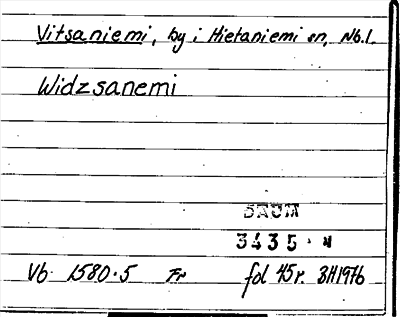 Vitsaniemi, by i Hietaniemi sn, Nb.l.
Widzsanemi
3435
Vb 1580.5 Fr fol 45r. BH1976